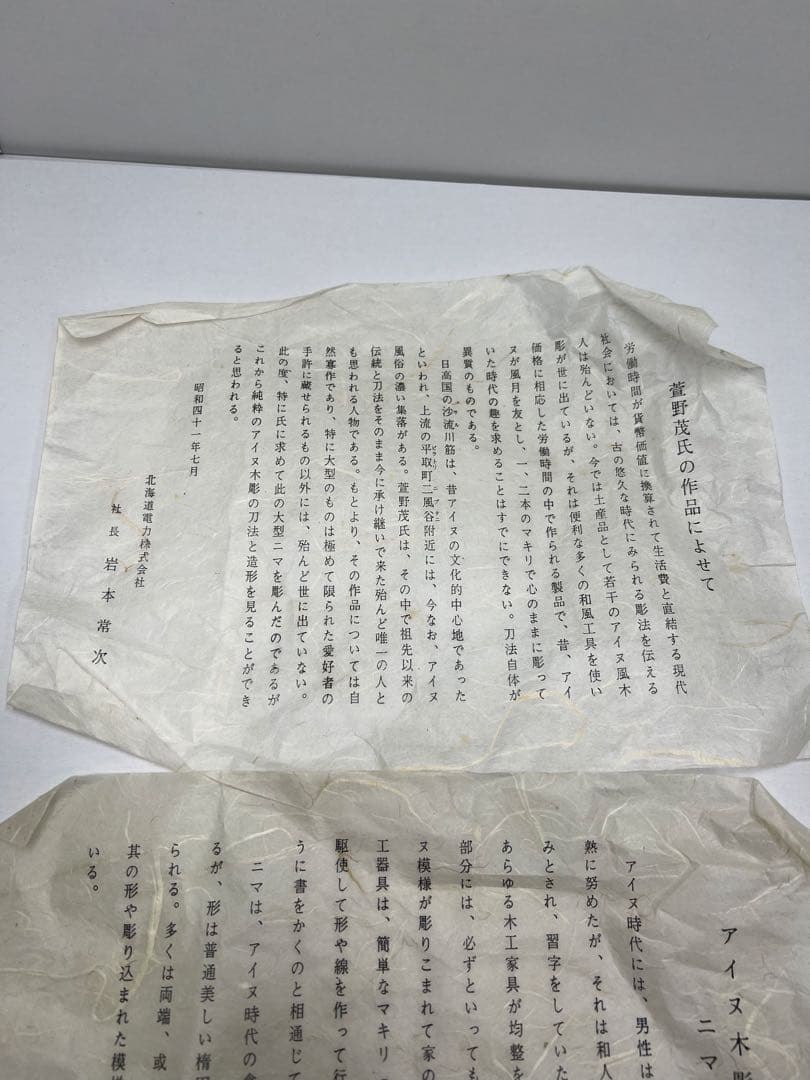 萱野茂氏の作品によせて
労働時間が貨幣価値に換算されて生活費と直結する現代
社会においては、古の悠久な時代にみられる彫法を伝える
人は殆んどいない。今では土産品として若干のアイヌ風木
彫が世に出ているが、それは便利な多くの和風工具を使い
価格に相応した労働時間の中で作られる製品で、昔、アイ
ヌが風月を友とし、一、二本のマキリで心のままに彫って
いた時代の趣を求めることはすでにできない。刀法自体が
異質のものである。
日高国の沙流川筋は、昔アイヌの文化的中心地であった
といわれ、上流の平取町二風谷附近には、今なお、アイヌ
風俗の濃い集落がある。萱野茂氏は、その中で祖先以来の
伝統と刀法をそのまま今に承け継いで来た殆んど唯一の人と
も思われる人物である。もとより、その作品については自
然寡作であり、特に大型のものは極めて限られた愛好者の
手許に蔵せられるもの以外には、殆んど世に出ていない。
此の度、特に氏に求めて此の大型ニマを彫んだのであるが
これから純粋のアイヌ木彫の刀法と造形を見ることができ
ると思われる。
昭和四十一年七月
北海道電力株式会社
社長 岩本常次
アイヌ木彫
ニマ
アイヌ時代には、男性は
熱に努めたが、それは和人
みとされ、習字をしていた
あらゆる木工家具が均整を
部分には、必ずといっても
ヌ模様が彫りこまれて家の
工器具は、簡単なマキリ
駆使して形や線を作って行
うに書をかくのと相通じて
ニマは、アイヌ時代の食
るが、形は普通美しい楕円
られる。多くは両端、或
其の形や彫り込まれた模様
いる。